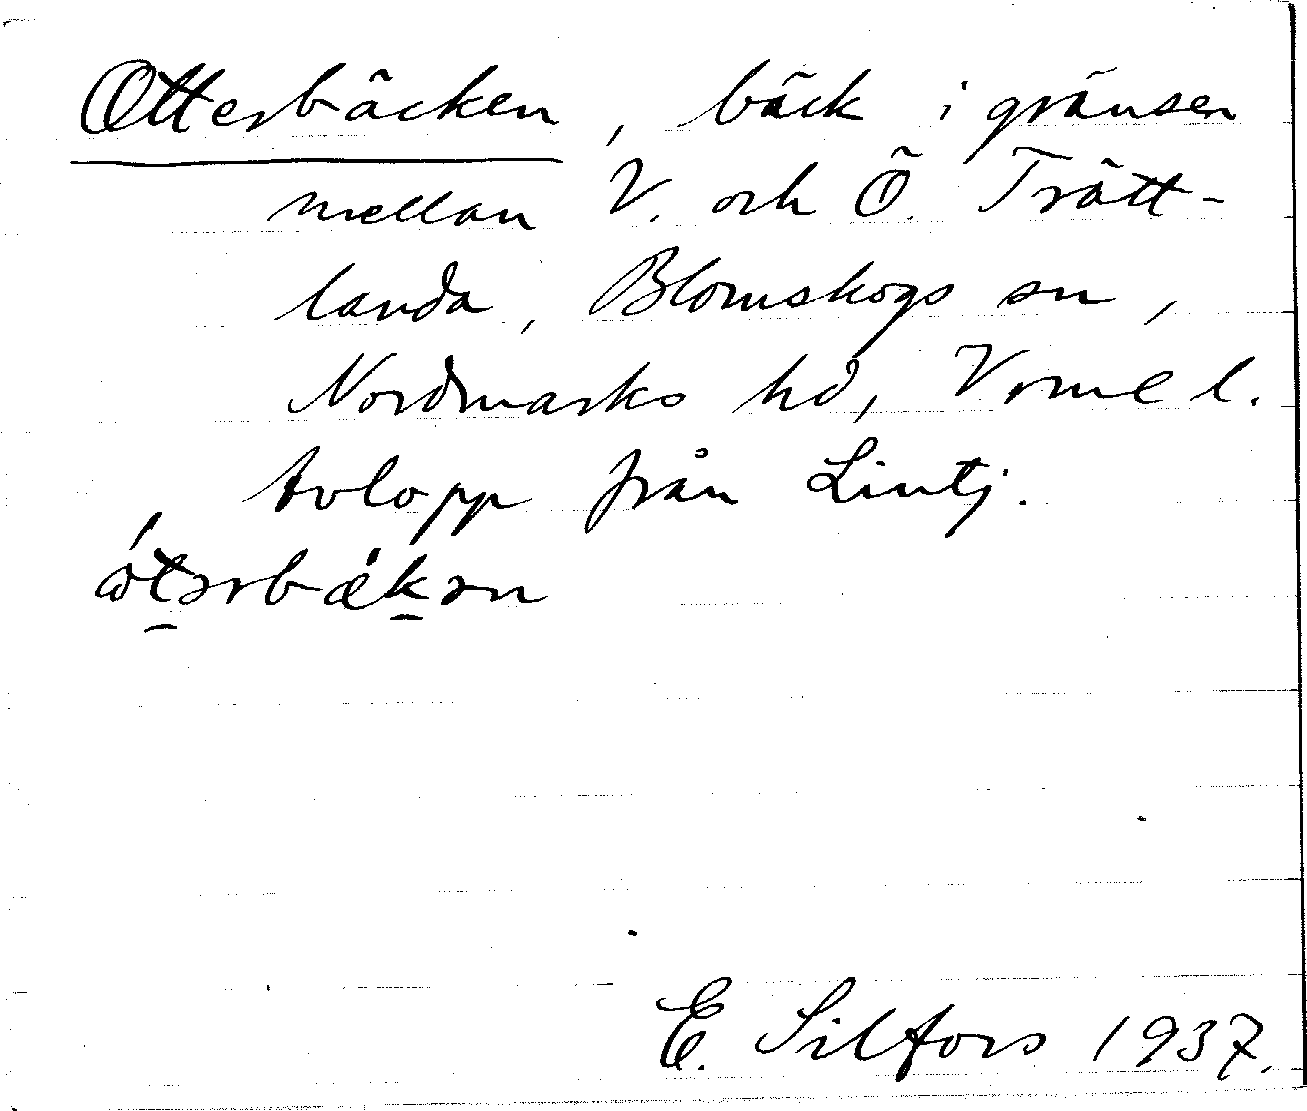 Otterbäcken, bäck i gränsen
mellan V. och Ö. Trätt-
landa, Blomskogs sn,
Nordmarks hd, Vrml l.
Avlopp från Lintj.
åtərbækən
E. Silfors 1937.